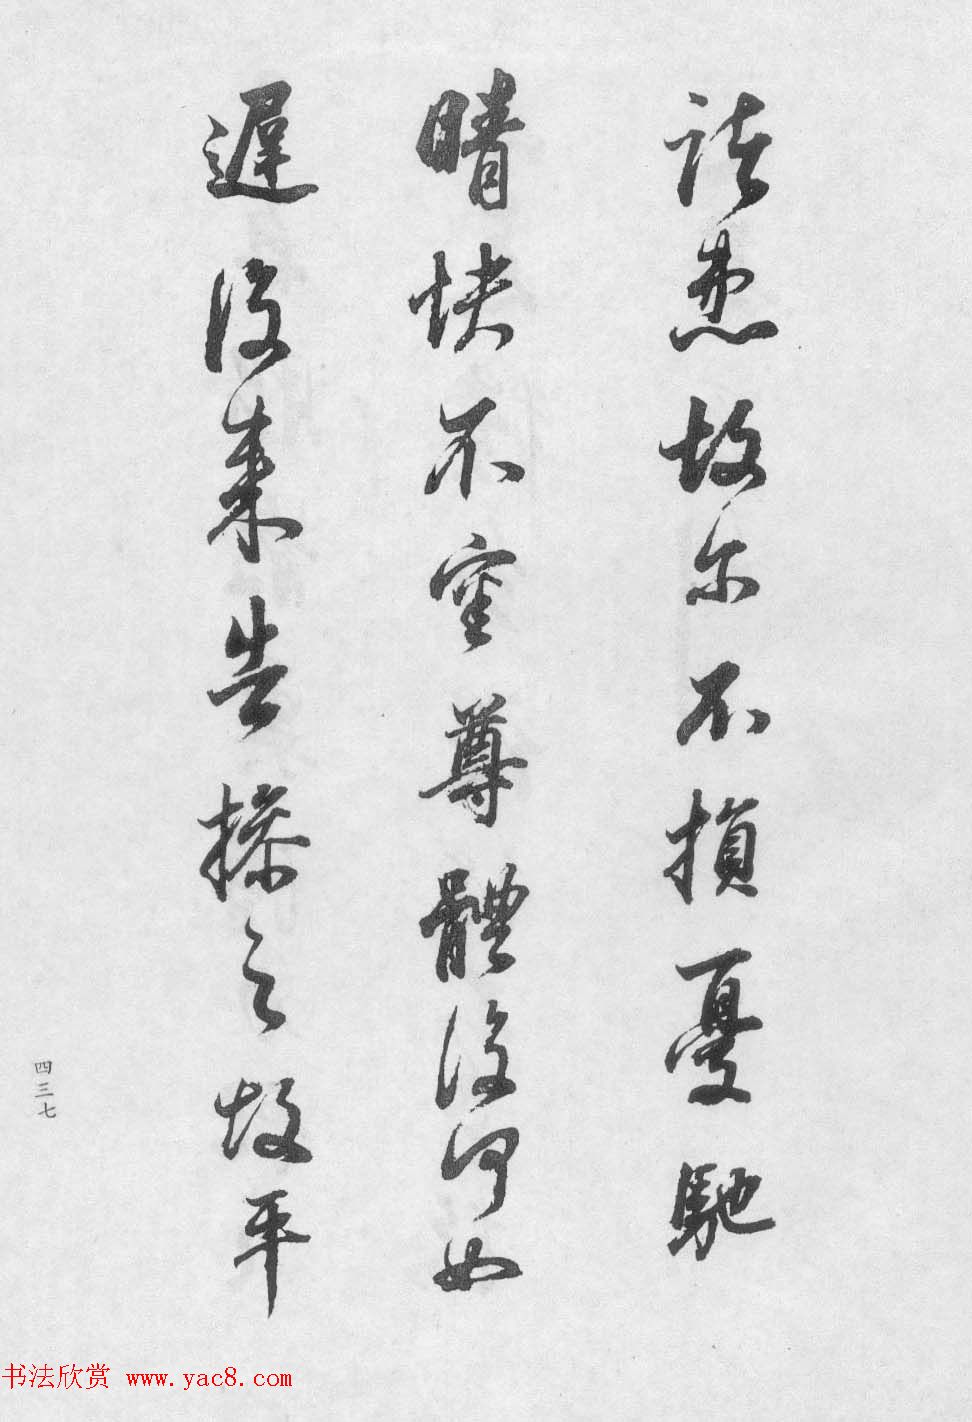 諸患故尔不損憂馳
晴快不審尊體復何如
遲復来告操之故平
四三七
书法欣赏 www.yac8.com